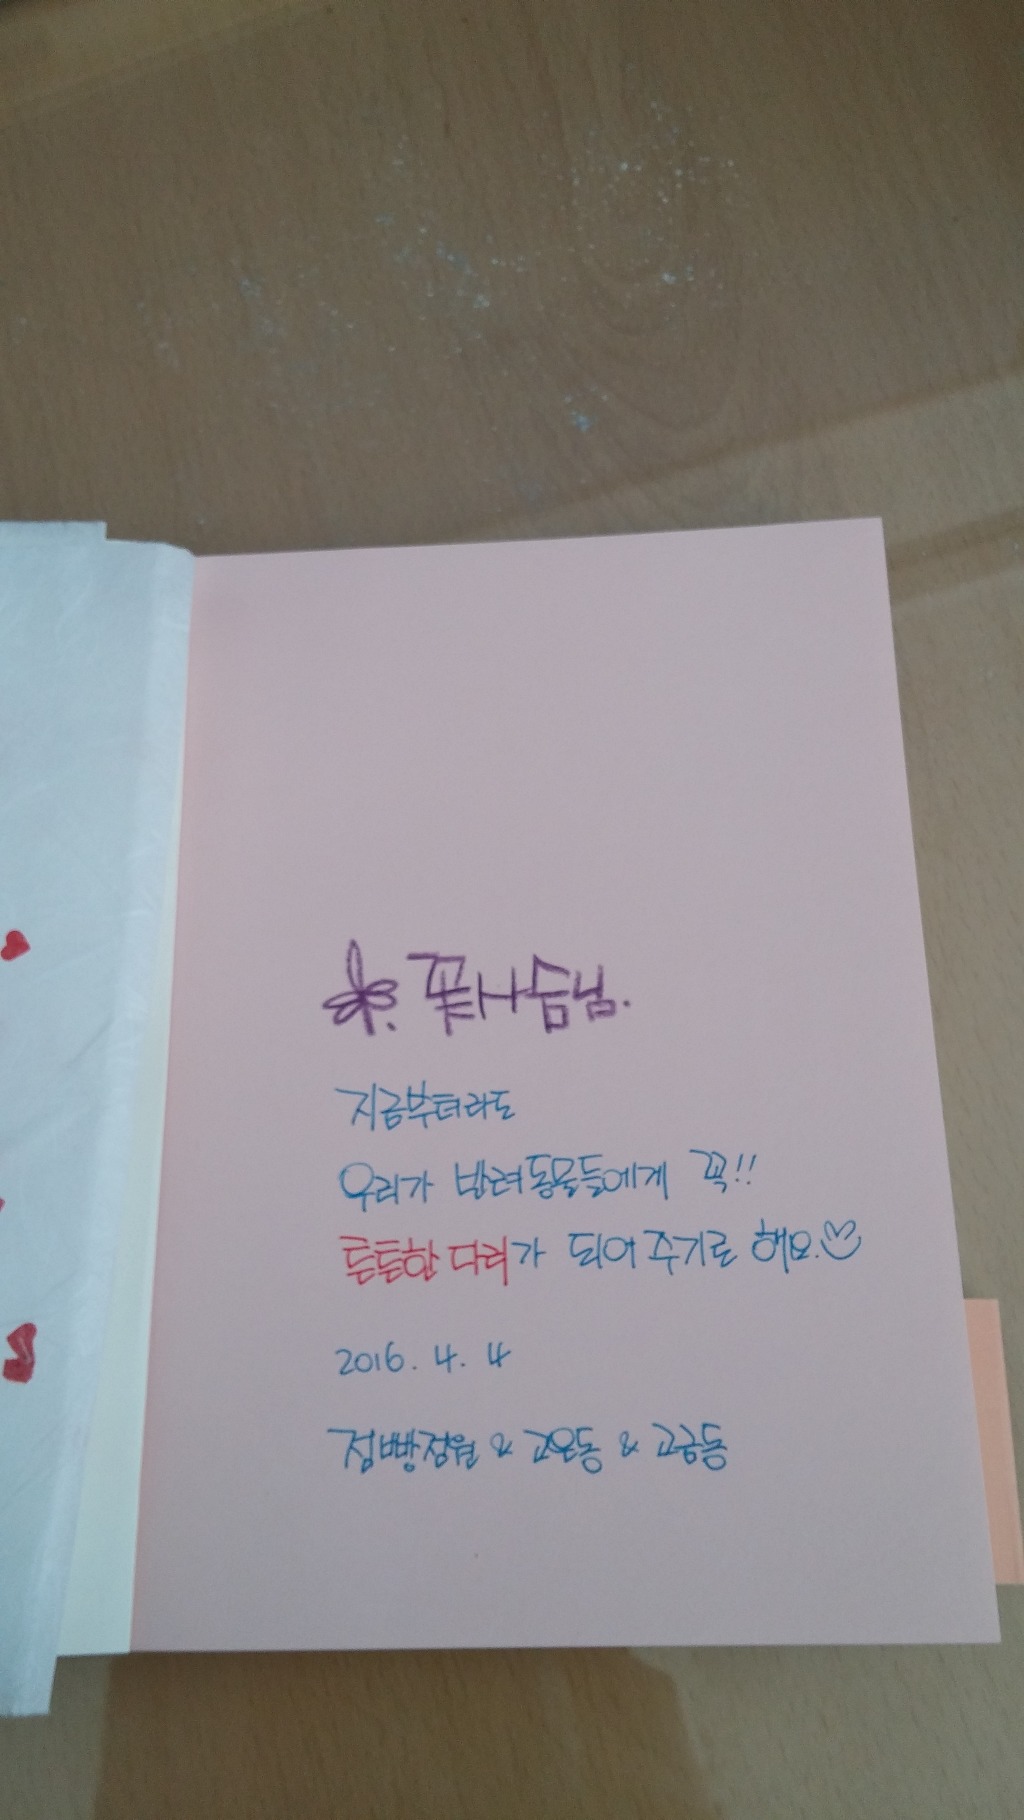 꽃사슴님.
지금부터라도
우리가 반려동물들에게 꼭!!
튼튼한 다리가 되어 주기로 해요.
2016. 4. 4
점빵정원 & 고온동 & 고금동